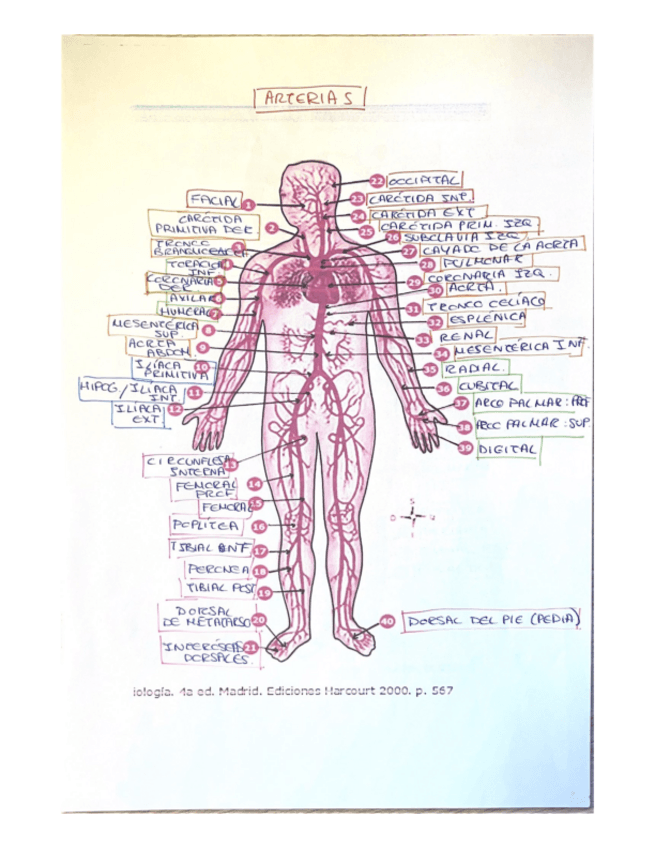 ARTERIAS
FACIAL 1
CARÓTIDA
PRIMITIVA DER 2
TRONCO
BRANQUIOCEF 3
TORACICA
INT. 4
CORONARIA
DER 5
AXILAR 6
HUMERAL 7
MESENTÉRICA
SUP. 8
AORTA
ABDOM. 9
ILÍACA
PRIMITIVA 10
HIPOG/ILIACA
INT 11
ILIACA
EXT. 12
CIRCUNFLEJA
INTERNA 13
FEMORAL
PROF. 14
FEMORAL 15
POPLITEA 16
TIBIAL ANT 17
PERONEA 18
TIBIAL POST 19
DORSAL
DE METATARSO 20
INTERÓSEAS
DORSALES 21
22 OCCIPITAL
23 CARÓTIDA INT.
24 CARÓTIDA EXT
25 CARÓTIDA PRIM. IZQ
26 SUBCLAVIA IZQ
27 CAYADO DE LA AORTA
28 PULMONAR
29 CORONARIA IZQ.
30 AORTA.
31 TRONCO CELÍACO
32 ESPLÉNICA
33 RENAL
34 MESENTÉRICA INF
35 RADIAL
36 CUBITAL
37 ARCO PALMAR: PRF
38 ARCO PALMAR: SUP.
39 DIGITAL
40 DORSAL DEL PIE (PEDIA)
S
iología. 4a ed. Madrid. Ediciones Harcourt 2000. p. 567